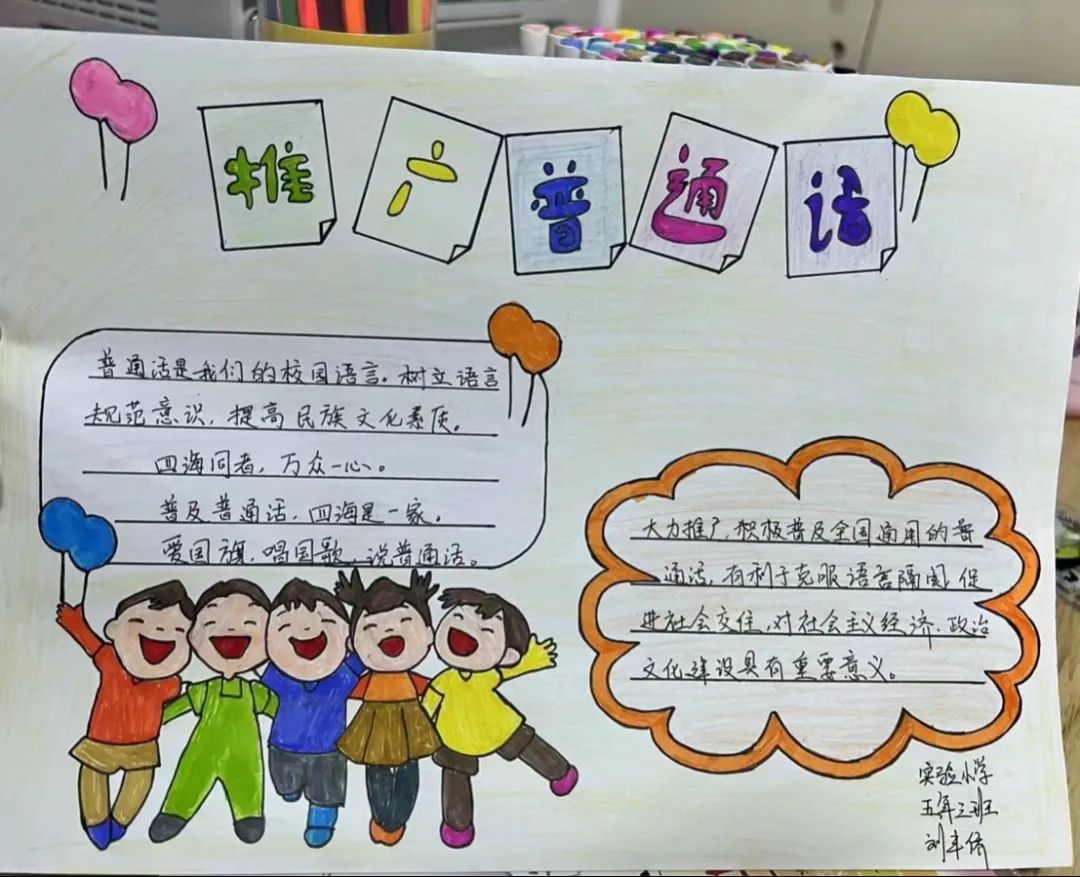 推广普通话
普通话是我们的校园语言。树立语言
规范意识，提高民族文化素质。
四海同音，万众一心。
普及普通话，四海是一家。
爱国旗，唱国歌，说普通话。
大力推广，积极普及全国通用的普
通话，有利于克服语言隔阂，促
进社会交往，对社会主义经济、政治
文化建设具有重要意义。
实验小学
五年三班